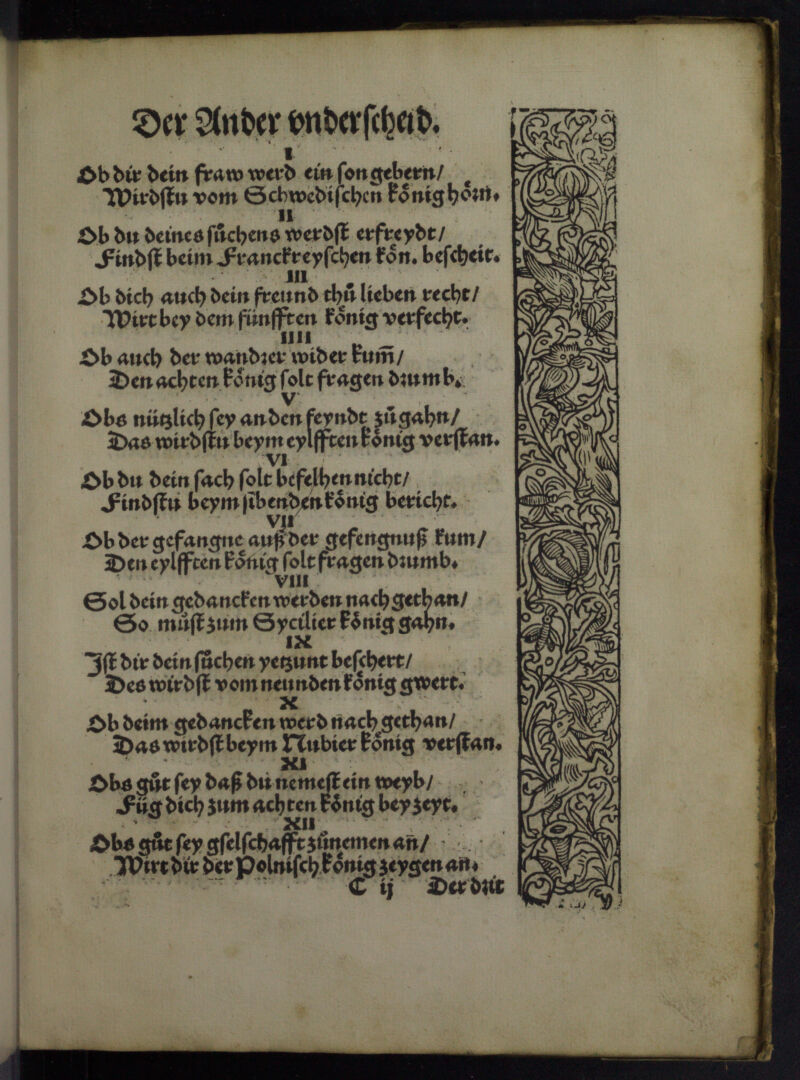 Der Ander vnderscheid.
I
Ob dir dein fraw werd ein son gebern/
Wirdstu vom Schwedischen könig hörn.
II
Ob du deines sůchens werdst erfreydt/
Findst beim Franckreyschen kön. bescheit.
III
Ob dich auch dein freund thů lieben recht/
Wirt bey dem fünfften könig verfecht.
IIII
Ob auch der wandrer wider kum̃/
Den achten könig solt fragen drumb.
V
Obs nützlich sey an den feyndt zů gahn/
Das wirdstu beym eylfften könig verstan.
VI
Ob du dein sach solt befelhen nicht/
Findstu beym sibenden könig bericht.
VII
Ob der gefangne auß der gefengnuß kum/
Den eylfften könig solt fragen drumb.
VIII
Sol dein gedancken werden nach gethan/
So můst zum Sycilier könig gahn.
IX
Ist dir dein sůchen yetzunt beschert/
Des wirdst vom neunden könig gwert.
X
Ob deim gedancken werd nach gethan/
Das wirdst beym Nubier könig verstan.
XI
Obs gůt sey daß du nemest ein weyb/
Füg dich zum achten könig bey zeyt.
XII
Obs gůt sey gselschafft zůnemen an/
Wirt dir der Polnisch könig zeygen an.
C ij Der drit